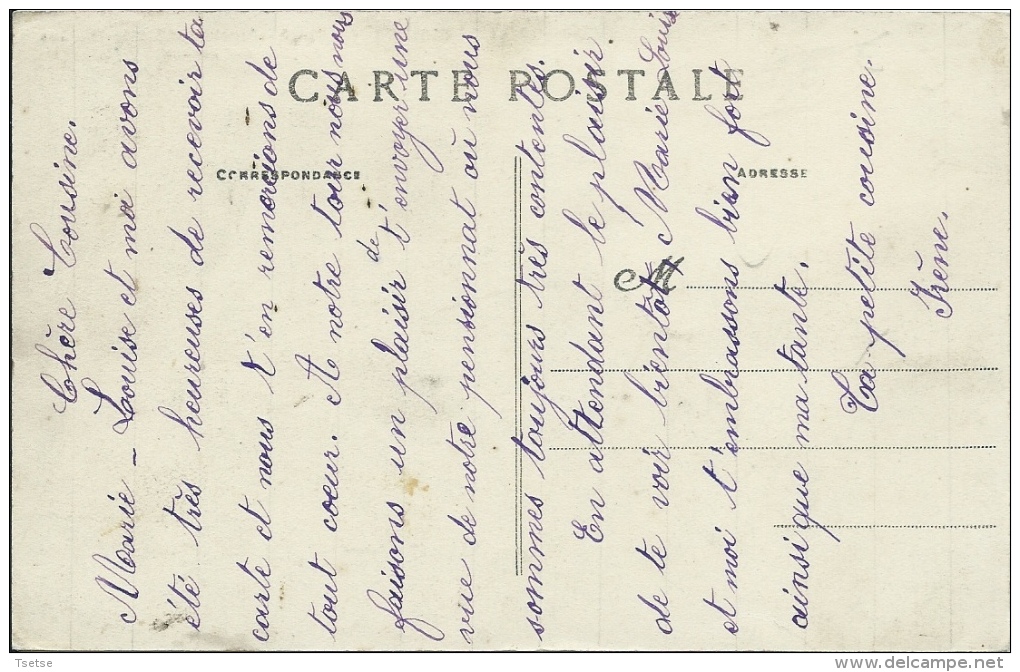 CARTE POSTALE
CORRESPONDANCE
ADRESSE
M
Chère Cousine.
Marie-Louise et moi avons
été très heureuses de recevoir ta
carte et nous t'en remercions de
tout coeur. A notre tour nous nous
faisons un plaisir de t'envoyer une
vue de notre pensionnat où nous
sommes toujours très contents.
En attendant le plaisir
de te voir bientôt, Marie Louise
et moi t'embrassons bien fort
ainsi que ma tante.
Ta petite cousine.
Irène.
Tsetse
http://www.delcampe.net